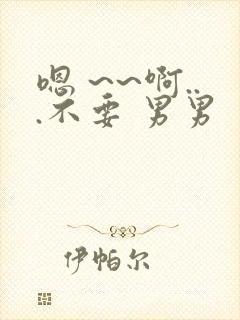 嗯 ~~啊..
.不要 男男
伊帕尔